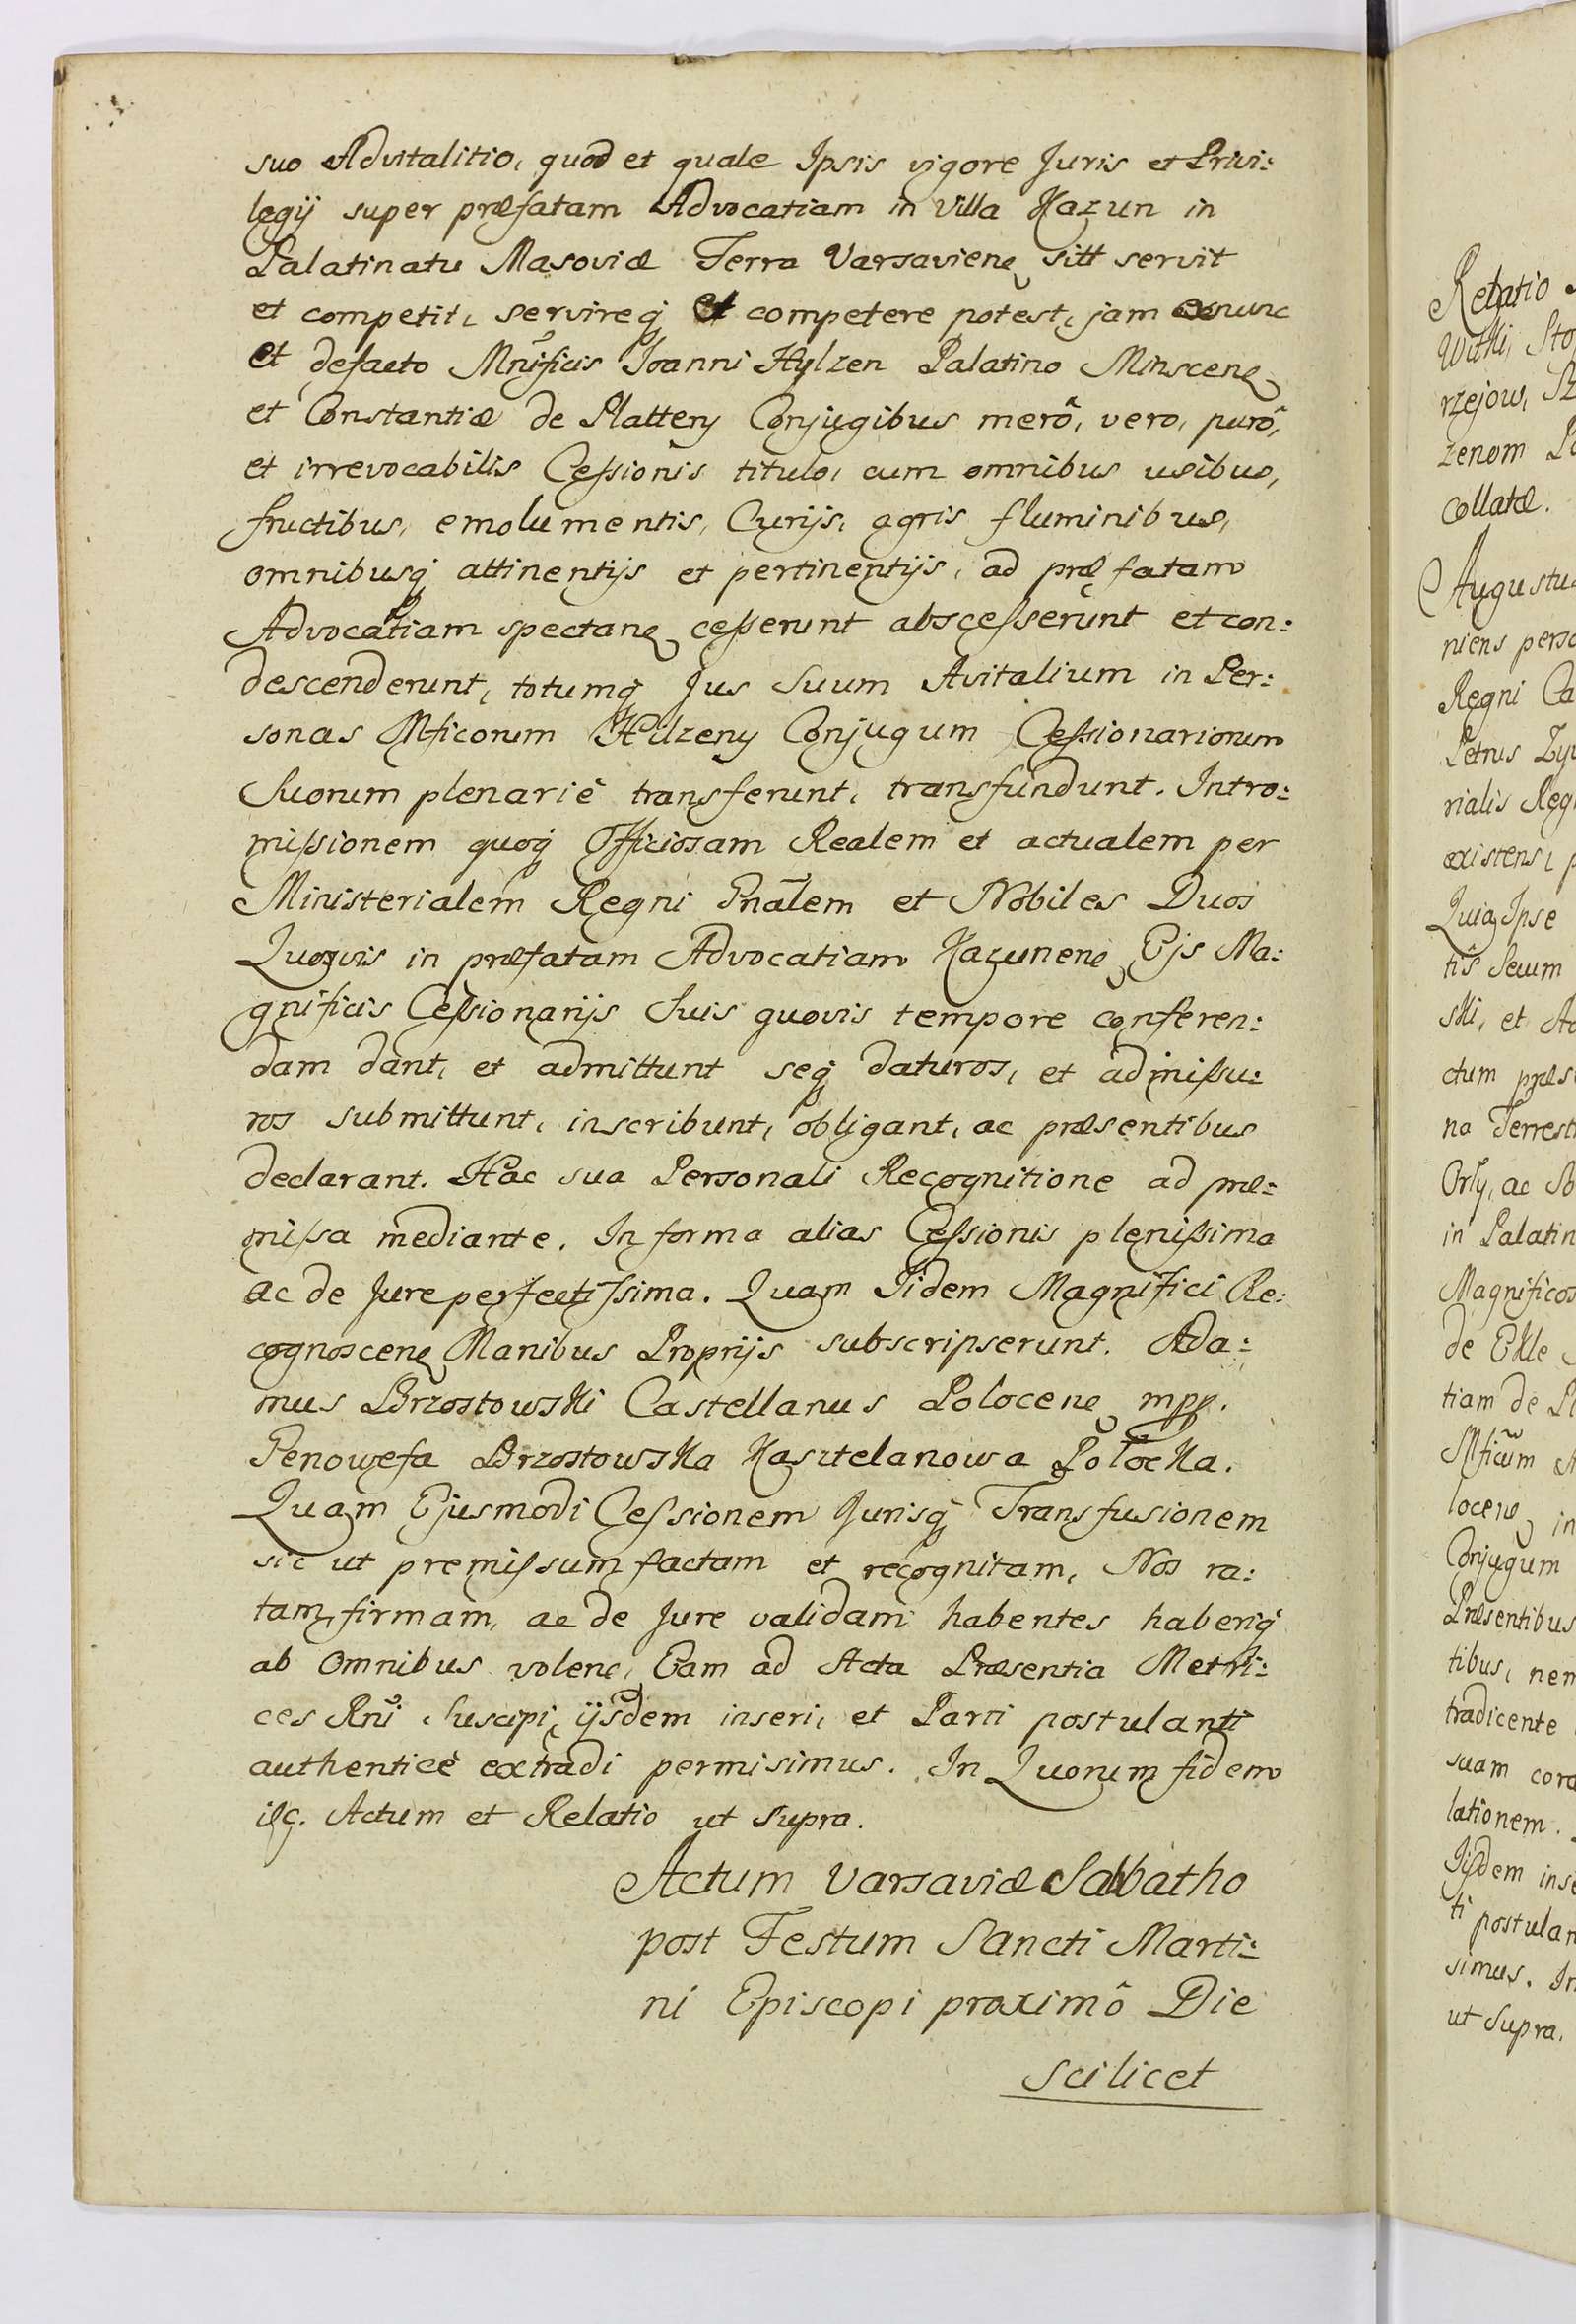 suo Advitalitio, quod et quale Ipsis vigore Juris et Privi:
legij super præfatam Advocatiam in Villa Kazun in
Palatinatu Masoviæ Terra Varsavienę sitt servit
et competit, servireq́ et competere potest, jam exnunc
et defacto Mnificis Joanni Hylzen Palatino Minscenę
et Constantiæ de Plattery Conjugibus merô, vero, purô,
et irrevocabilis Cessionis titulo, cum omnibus usibus,
fructibus, emolumentis, Curijs, agris fluminibus,
omnibusq́ attinentijs et pertinentijs, ad præfatam
Advocatiam spectanę cesserunt abscesserunt et con:
descenderunt, totumq́ Jus Suum Avitalium in Per:
sonas Mficorum Hilzeny Conjugum Cessionariorum
Suorum plenariè transferunt, transfundunt. Intro:
missionem quoq́ Officiosam Realem et actualem per
Ministerialem Regni Gnãlem et Nobiles Duos
Quosvis in præfatam Advocatiam Kazunenę Ejs Ma:
gnificis Cessionarijs Suis quovis tempore conferen:
dam dant, et admittunt seq́ daturos, et admissu:
ros submittunt, inscribunt, obligant, ac præsentibus
declarant. Hac sua Personali Recognitione ad præ:
missa mediante. In forma alias Cessionis plenissima
ac de Jure perfectissima. Quam Iidem Magnifici Re:
cognoscenę Manibus Proprijs subscripserunt. Ada:
mus Brzostowski Castellanus Polocenę mpp.
Genowefa Brzostowska Kasztelanowa Połocka.
Quam Ejusmodi Cessionem Jurisq́ Transfusionem
sic ut premissum factam et recognitam, Nos ra:
tam, firmam, ac de Jure validam habentes haberiq́
ab Omnibus volenę, Eam ad Acta Præsentia Metri:
ces Rni Suscipi, ijsdem inseri, et Parti postulanti
authenticè extradi permisimus. In Quorum fidem
Actum et Relatio ut Supra.
Actum Varsaviæ Sabbatho
post Festum Sancti Marti:
ni Episcopi proximô Die
scilicet
Relatio
Witki, Sto
rzejow,
zenom
Collatæ.
Augustus
niens perso
Regni Ca
Petrus
rialis Reg
existens,
Quia Ipse
tis Secum
ski, et
ctum præs
na Terrest
Orły, ac So
in Palatin
Magnificos
de
tiam de Pl
Mficũm
locenę in
Conjugum
Præsentibus
tibus, nem
tradicente
suam cora
lationem.
Iijsdem inse
ti postulan
simus. In
ut Supra.